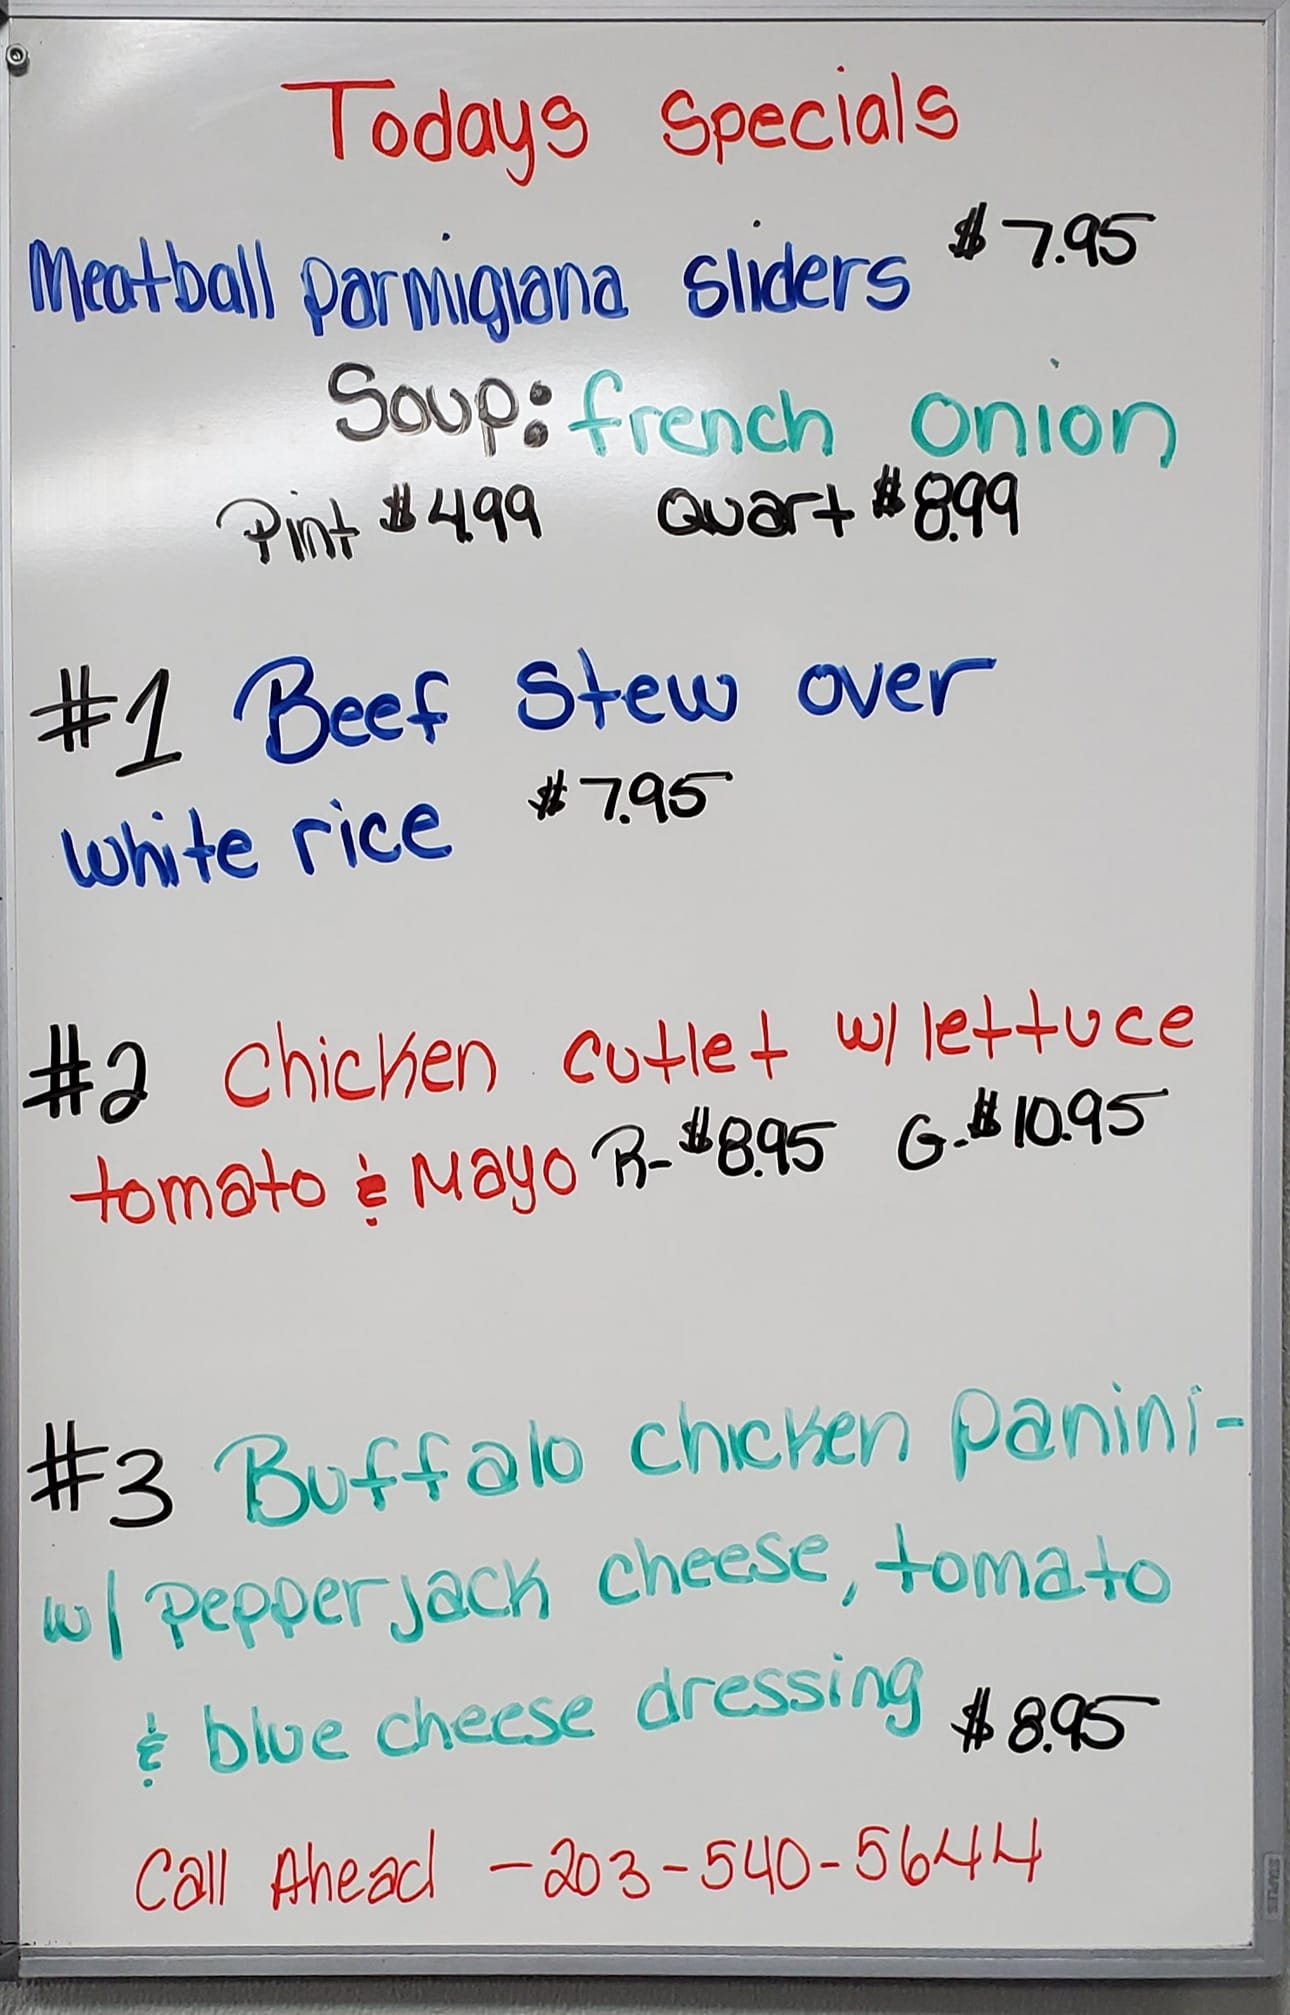 Todays Specials
Meatball parmigiana sliders $7.95
Soup: french onion
Pint $4.99 Quart $8.99
#1 Beef Stew over
white rice $7.95
#2 Chicken cutlet w/ lettuce
tomato & Mayo R-$8.95 G-$10.95
#3 Buffalo chicken panini-
w/ pepperjack cheese, tomato
& blue cheese dressing $8.95
Call Ahead -203-540-5644
STAPLES